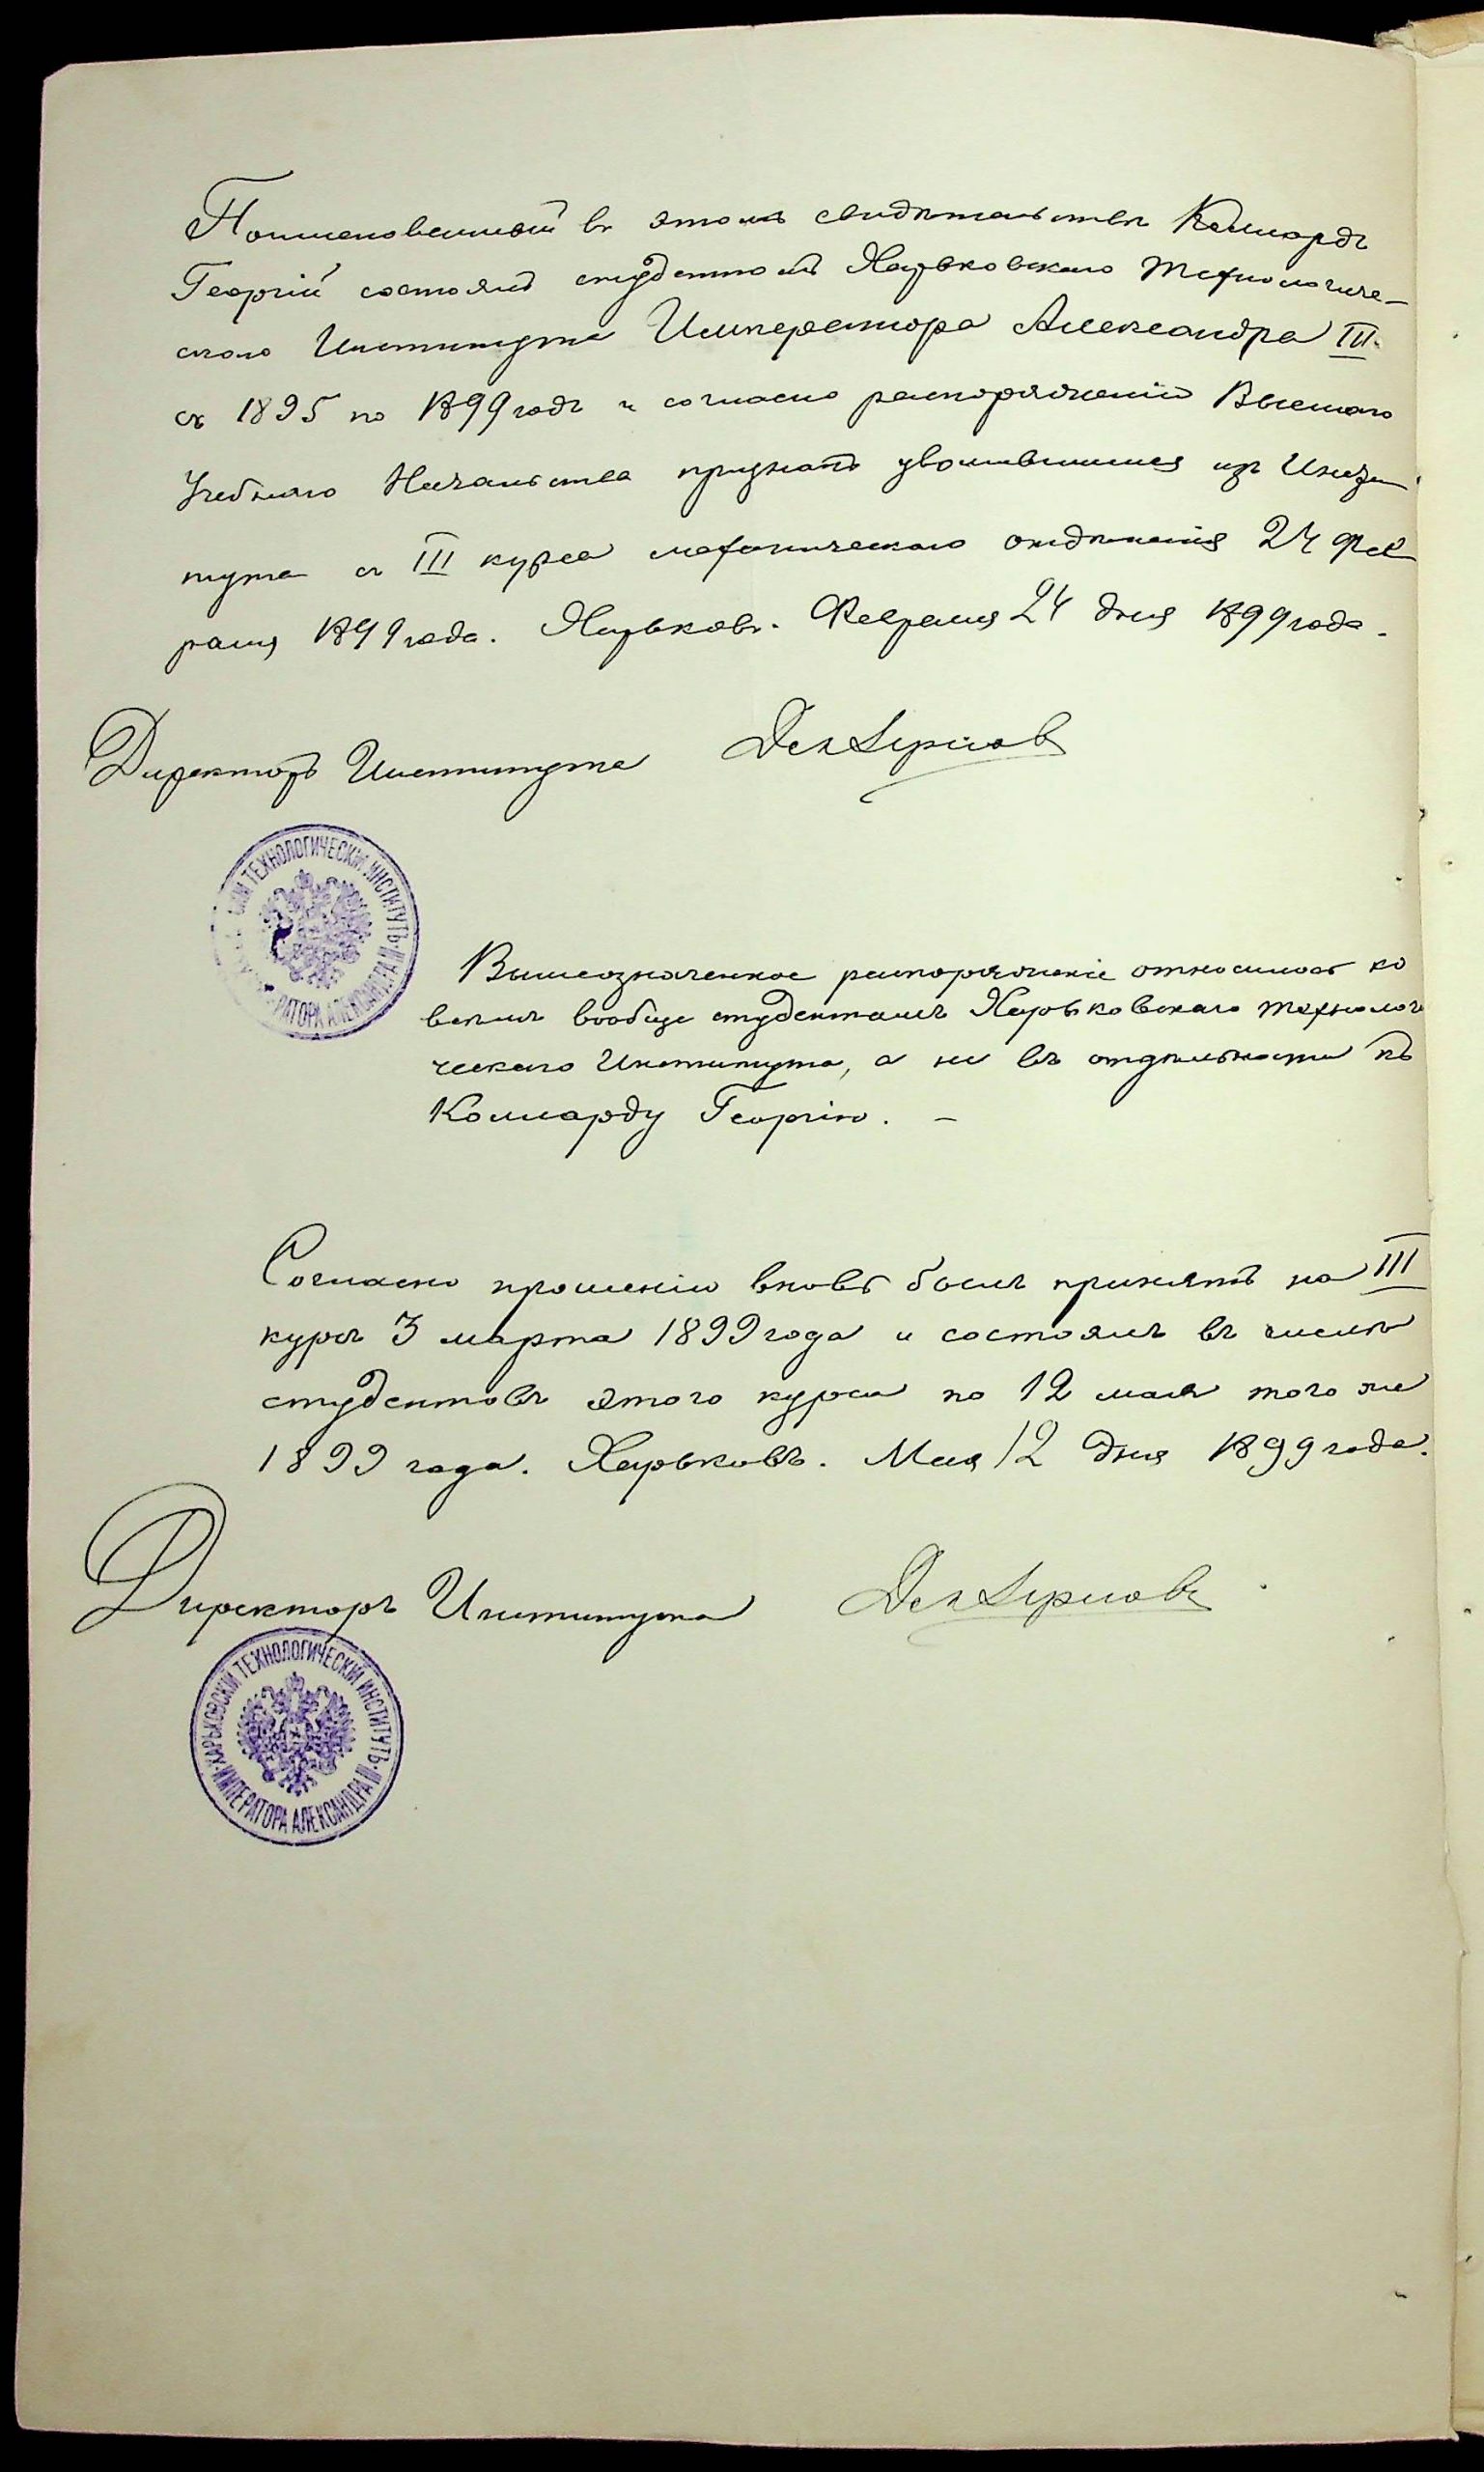 Поименованный въ этомъ свидѣтельствѣ Коллардъ
Георгій состоялъ студентомъ Харьковскаго Технологиче-
скаго Института Императора Александра III
съ 1895 по 1899 годъ и согласно распоряженію Высшаго
Учебнаго Начальства признанъ уволившимся изъ Инсти-
тута съ III курса механическаго отдѣленія 24 Фев
раля 1899 года. Харьковъ. Февраля 24 дня 1899 года.
Директоръ Института
ТЕХНОЛОГИЧЕСКІЙ ИНСТИТУТЪ
РАТОРА АЛЕКСАНДРА III
Вышеозначенное распоряженіе относилось ко
всѣмъ вообще студентамъ Харьковскаго Технологи
ческаго Института, а не въ отдѣльности къ
Колларду Георгію. –
Согласно прошенію вновь былъ принятъ на III
курсъ 3 марта 1899 года и состоялъ въ числѣ
студентовъ этого курса по 12 мая того же
1899 года. Харьковъ. Мая 12 дня 1899 года.
Директоръ Института
ХАРЬКОВСКІЙ ТЕХНОЛОГИЧЕСКІЙ ИНСТИТУТЪ
ИМПЕРАТОРА АЛЕКСАНДРА III